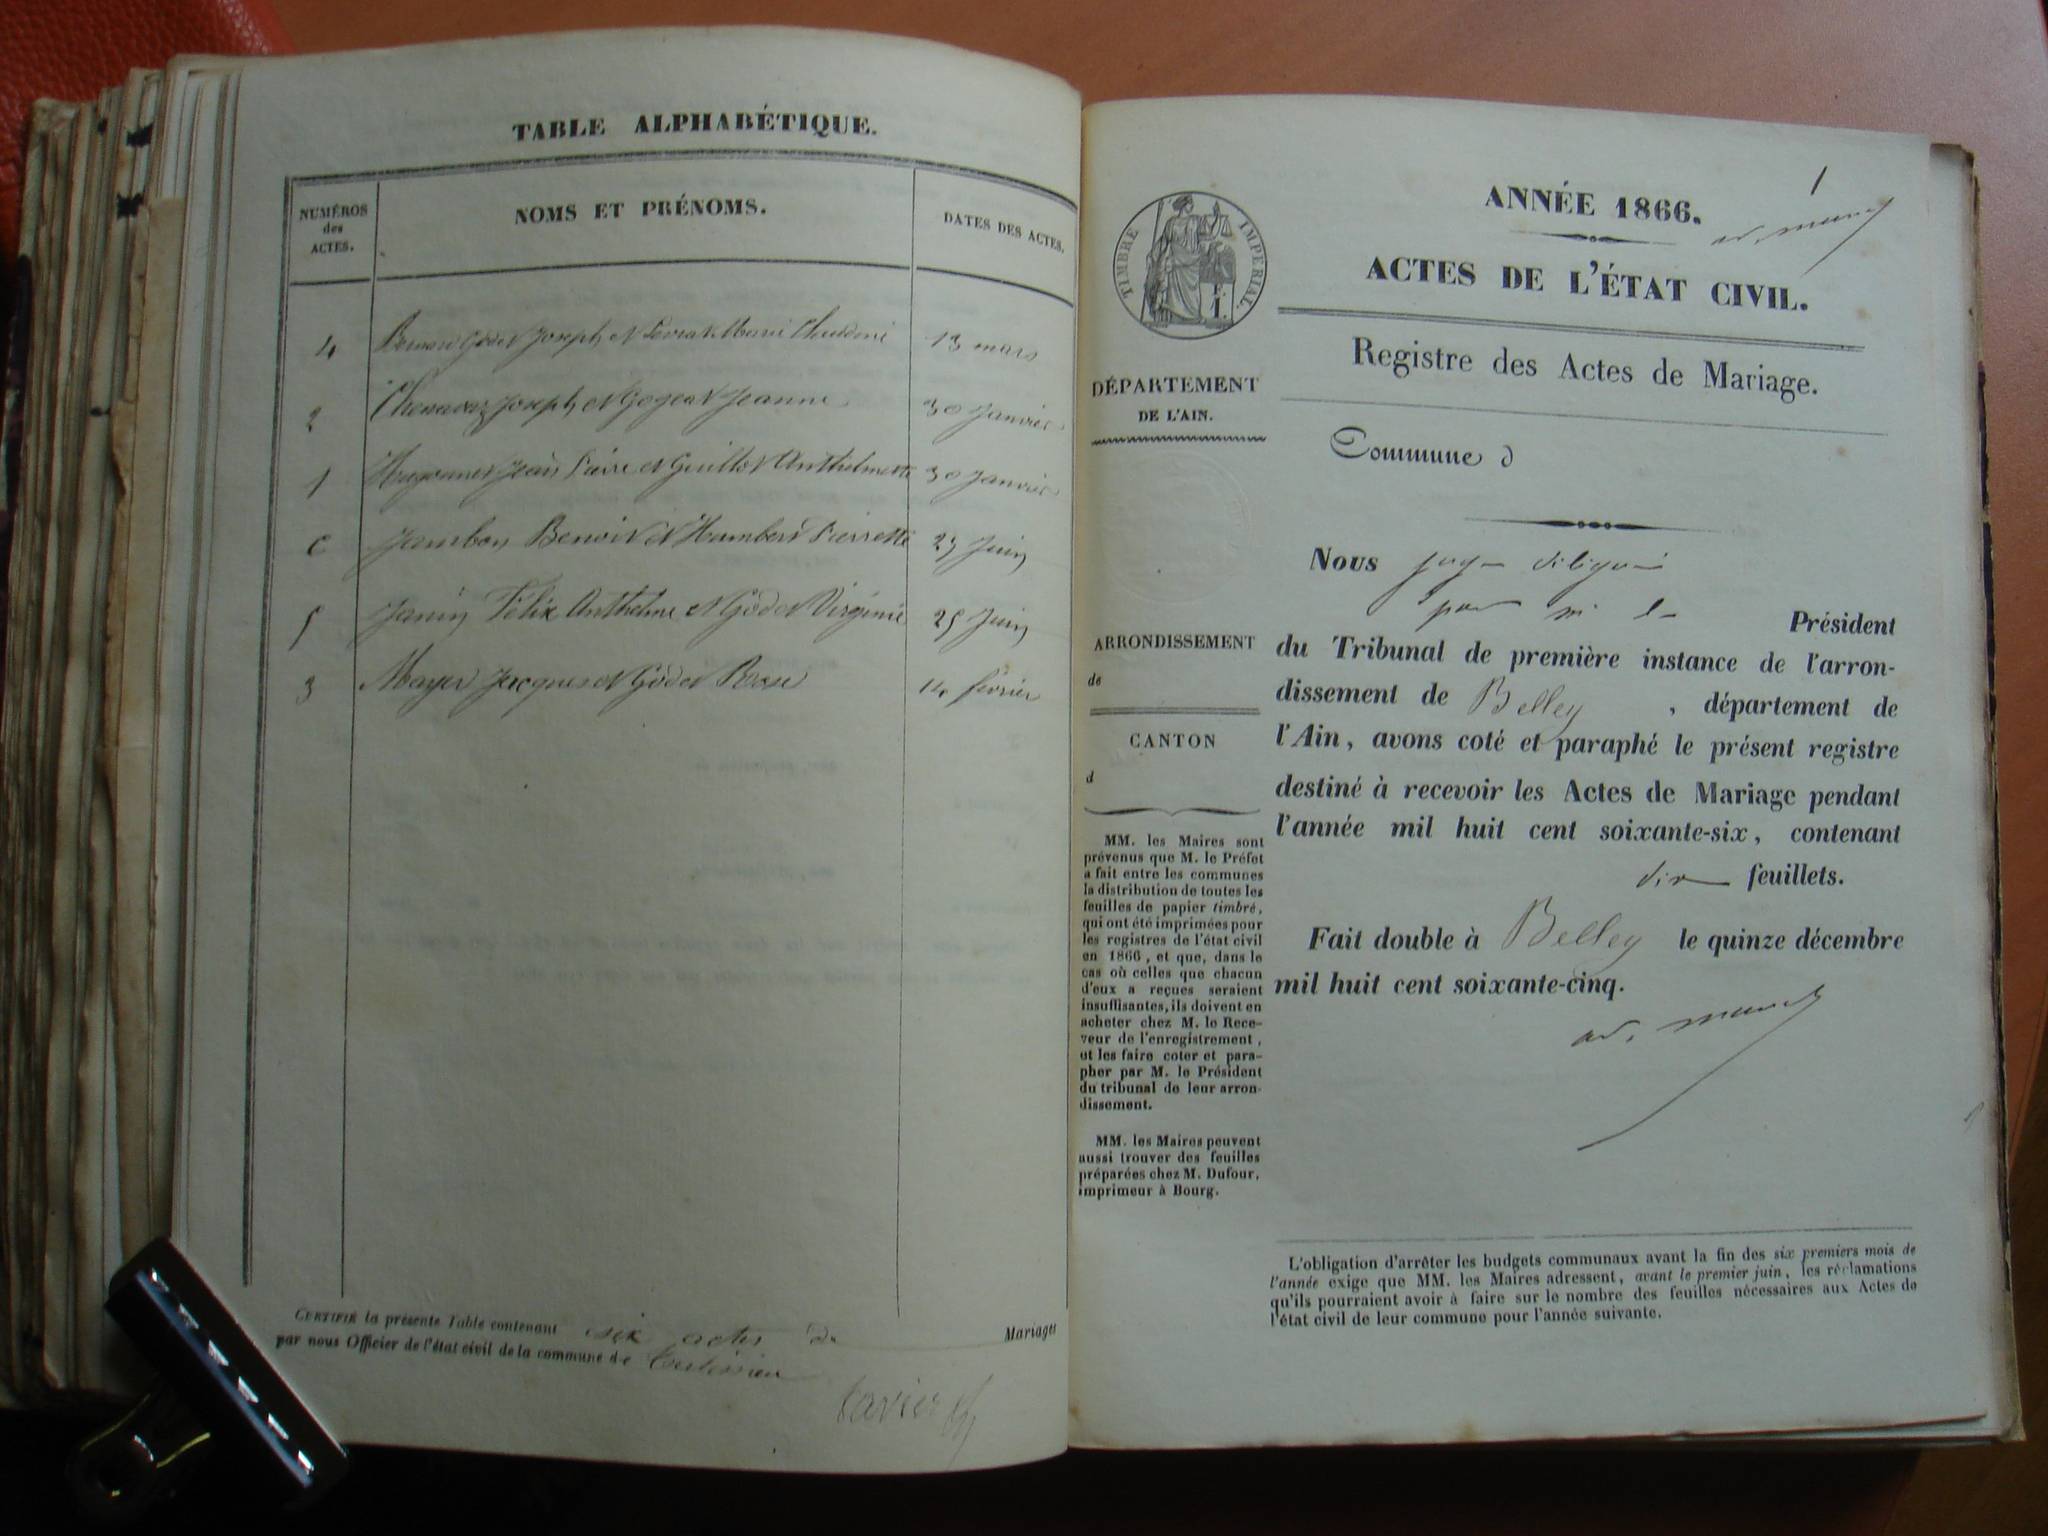 TABLE ALPHABÉTIQUE.
NUMÉROS
des
ACTES.
NOMS ET PRÉNOMS.
DATES DES ACTES.
4 Bernard Godet Joseph et Marie Claudine 13 mars
2 Joseph et Gogeat Jeanne 30 Janvier
1 Hugonnet Jean Pierre et Guillot Anthelmette 30 Janvier
6 Jambon Benoit et Humbert Pierrette 25 Juin
5 Janin Félix Anthelme et Godet Virginie 25 Juin
3 Mayer Jacques et Godet Rose 14 février
CERTIFIÉ la présente Table contenant six actes de Mariages
par nous Officier de l'état civil de la commune de
Tavier
1
ANNÉE 1866.
TIMBRE IMPÉRIAL.
1
F.
ACTES DE L'ÉTAT CIVIL.
Registre des Actes de Mariage.
DÉPARTEMENT
DE L'AIN.
Commune d
Nous juge délégué
par Mr le Président
du Tribunal de première instance de l'arron-
dissement de Belley, département de
l'Ain, avons coté et paraphé le présent registre
destiné à recevoir les Actes de Mariage pendant
l'année mil huit cent soixante-six, contenant
dix feuillets.
Fait double à Belley le quinze décembre
mil huit cent soixante-cinq.
ARRONDISSEMENT
de
CANTON
d
MM. les Maires sont
prévenus que M. le Préfet
a fait entre les communes
la distribution de toutes les
feuilles de papier timbré,
qui ont été imprimées pour
les registres de l'état civil
en 1866, et que, dans le
cas où celles que chacun
d'eux a reçues seraient
insuffisantes, ils doivent en
acheter chez M. le Rece-
veur de l'enregistrement,
et les faire coter et para-
pher par M. le Président
du tribunal de leur arron-
dissement.
MM. les Maires peuvent
aussi trouver des feuilles
préparées chez M. Dufour,
imprimeur à Bourg.
L'obligation d'arrêter les budgets communaux avant la fin des six premiers mois de
l'année exige que MM. les Maires adressent, avant le premier juin, les réclamations
qu'ils pourraient avoir à faire sur le nombre des feuilles nécessaires aux Actes de
l'état civil de leur commune pour l'année suivante.